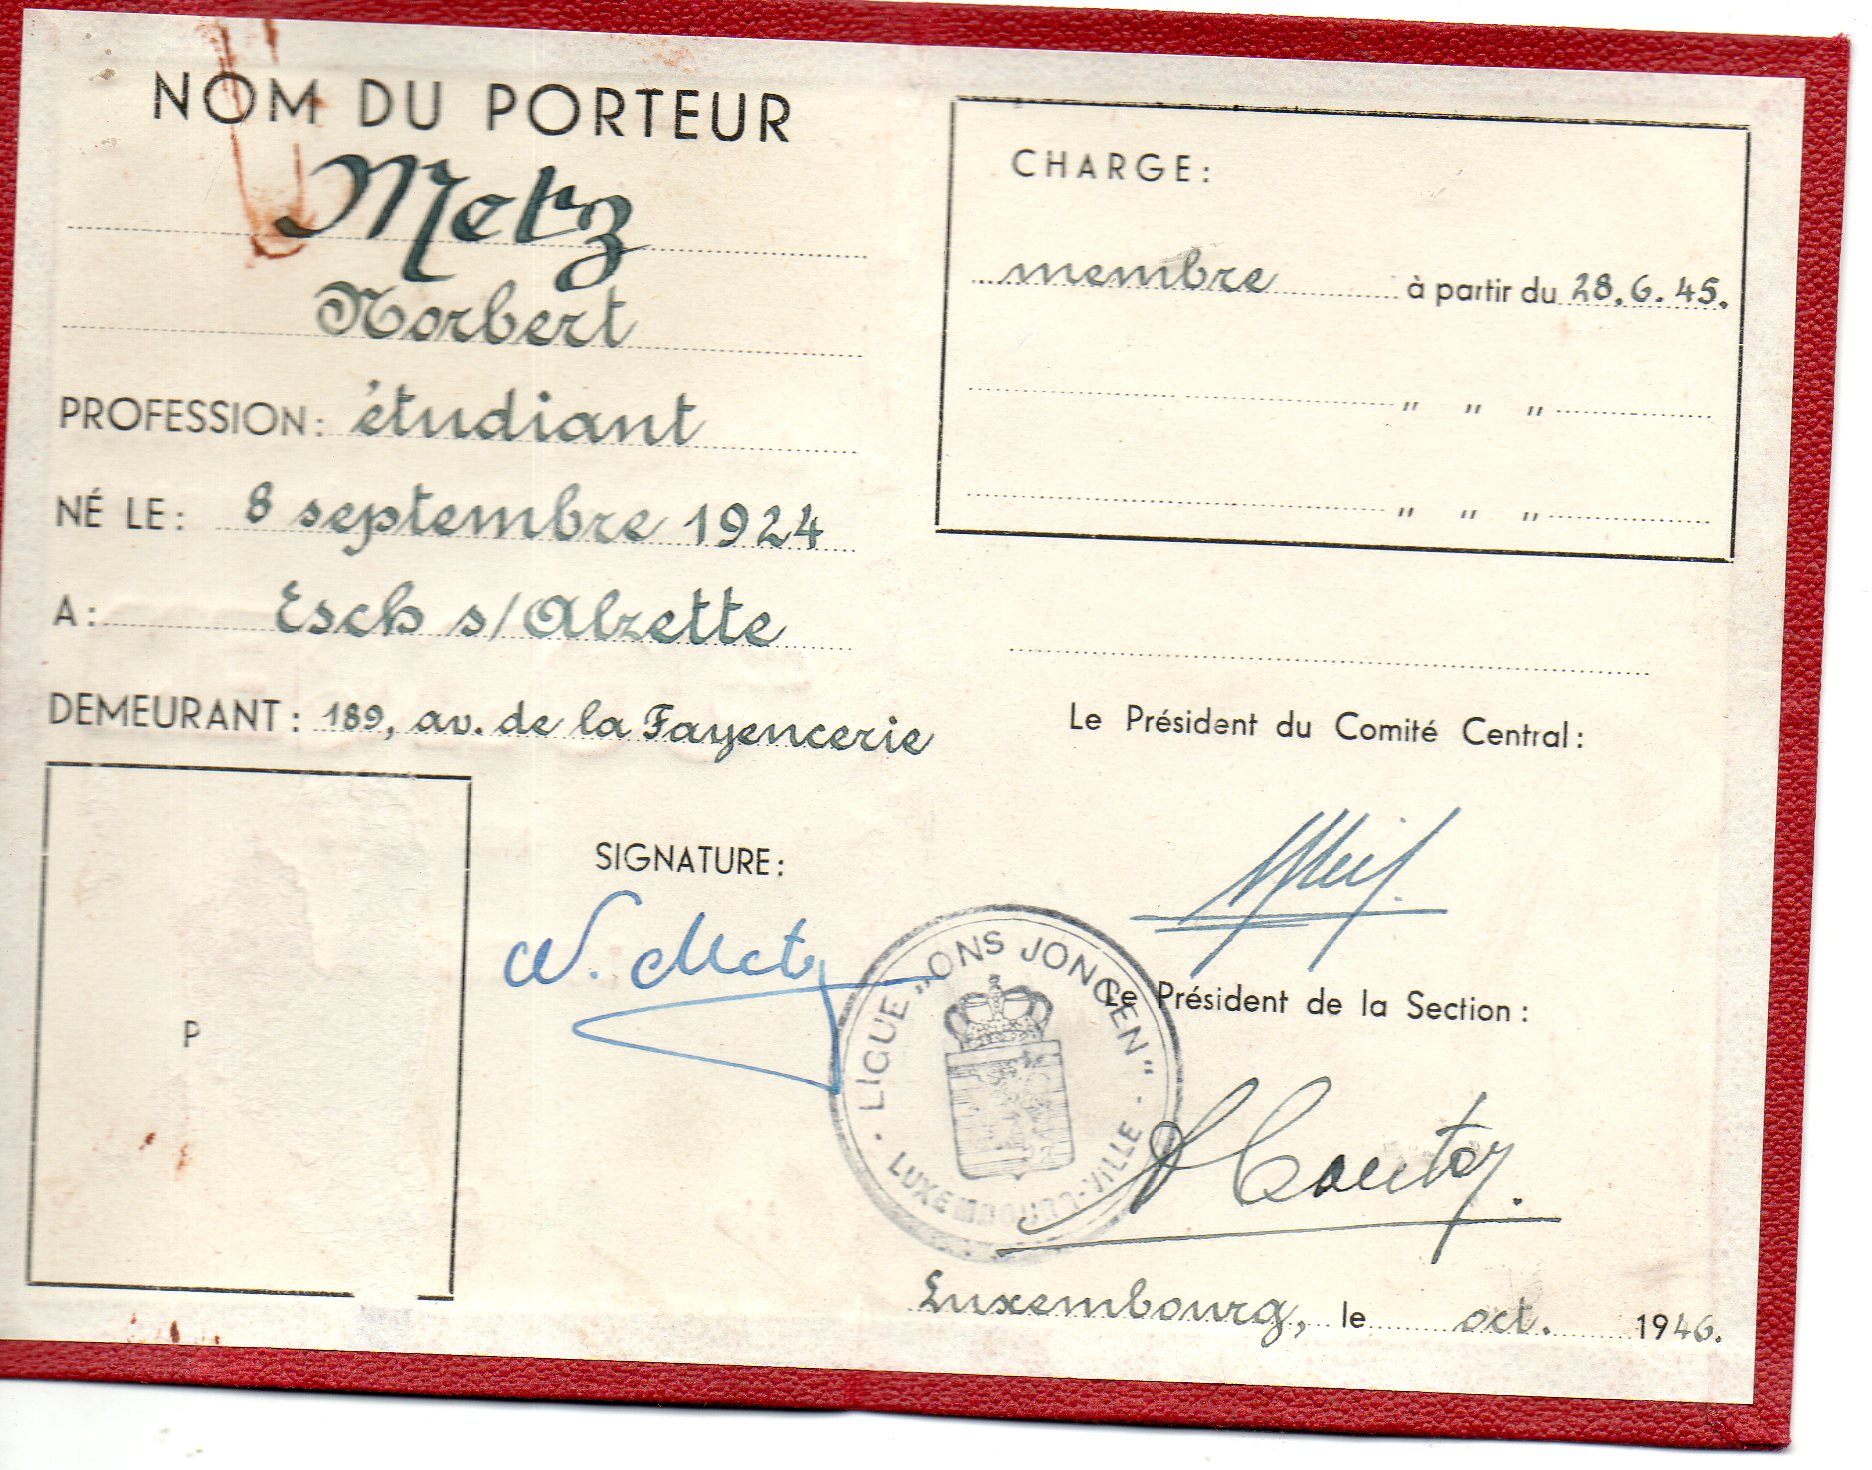 NOM DU PORTEUR
Metz
Norbert
PROFESSION: étudiant
NÉ LE: 8 septembre 1924
A: Esch s/Alzette
DEMEURANT: 189, av. de la Fayencerie
P
SIGNATURE:
N. Metz
CHARGE:
membre à partir du 28.6.45.
" " "
" " "
Le Président du Comité Central:
LIGUE „ONS JONGEN"
LUXEMBOURG-VILLE
Le Président de la Section:
Luxembourg, le oct. 1946.